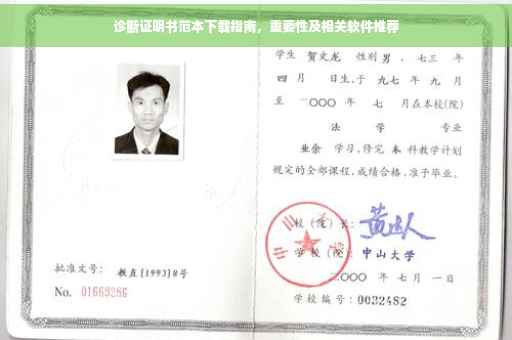 诊断证明书范本下载指南，重要性及相关软件推荐
学生 贺文龙 性别 男 、七三 年
四 月 日生,于 九七 年 九 月
至 二〇〇〇 年 七 月在本校(院)
法 学 专业
业余 学习,修完 本 科教学计划
规定的全部课程,成绩合格,准予毕业。
校(院)长:
学校(院): 中山大学
二〇〇〇 年 七 月 一 日
学校编号: 0032482
批准文号: 教直[1993]8号
No. 01669286